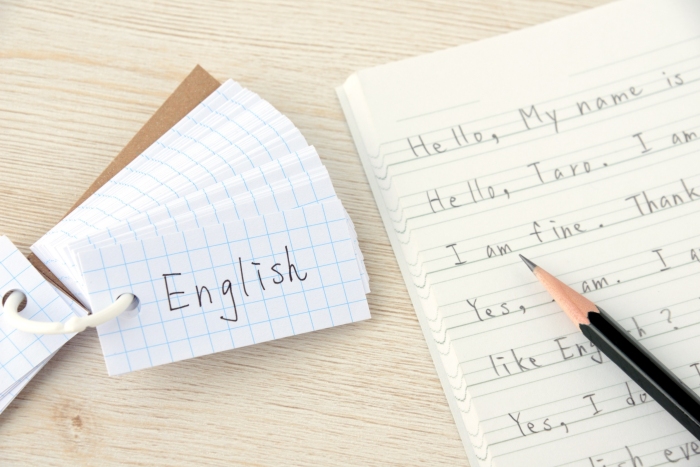 English
Hello, My name is
Hello, Taro. I am
I am fine. Thank
Yes, am. I
like English?
Yes, I do
lish eve